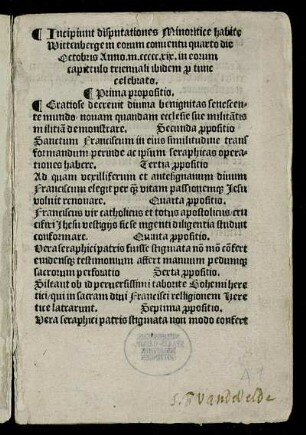 ¶ Incipiunt disputationes Minoritice habite
Wittenberge in eorum conventu quarto die
Octobris Anno.m.ccccc.xix. in eorum
capittulo triennali ibidem p tunc
celebrato.
¶ Prima propositio.
¶ Gratiose decrevit divina benignitas senescen-
te mundo. novam quandam ecclesie sue militātis
militiā demonstrare. Secunda ꝓpositio
Sanctum Franciscum in eius similitudinē trans
formandum perinde ac ipsum seraphicas opera-
tiones habere. Tertia ꝓpositio
Ad quam vexilliferum et antesignanum divum
Franciscum elegit per quē vitam passionemqꝫ Jesu
voluit renovare. Quarta ꝓpositio.
Franciscus vir catholicus et totus apostolicus, cru
cifixi Jhesu vestigijs sic se ingenti diligentia studuit
conformare. Quinta ꝓpositio.
Vera seraphici patris fuisse stigmata nō mō cōfert
evidensqꝫ testimonium affert manuum pedumqꝫ
sacrorum perforatio Sexta ꝓpositio.
Sileant ob id perversissimi taborite Bohemi here
tici, qui in sacram divi Francisci religionem Here
tice latrarunt. Septima ꝓpositio.
Vera seraphici patris stigmata non modo confert